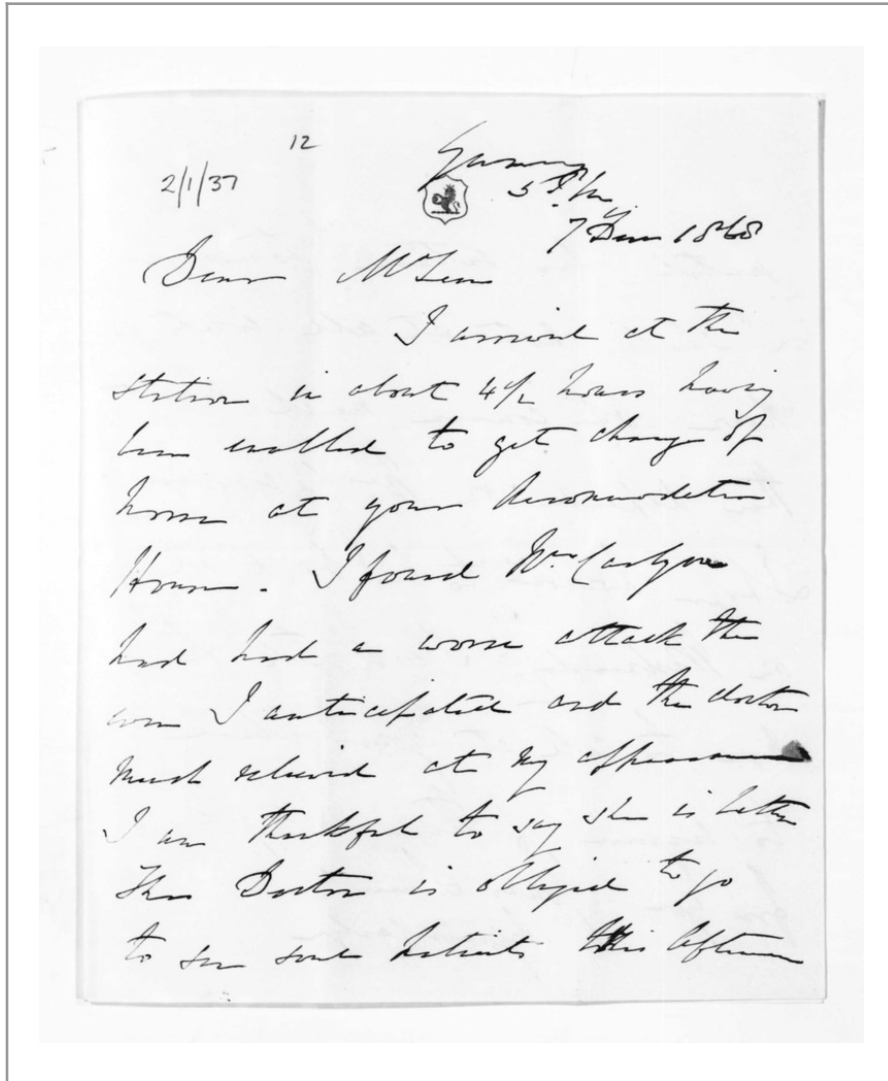 12
2/1/37
5 P.M.
7 Decr 1868
Dear McLean
I arrived at the
station in about 4 1/2 hours having
been enabled to get change of
horse at your Accommodation
House. I found Mrs
had had a worse attack than
even I anticipated and the doctor
much relieved at my appearance
I am thankful to say she is better
The Doctor is obliged to go
to see some patients this afternoon